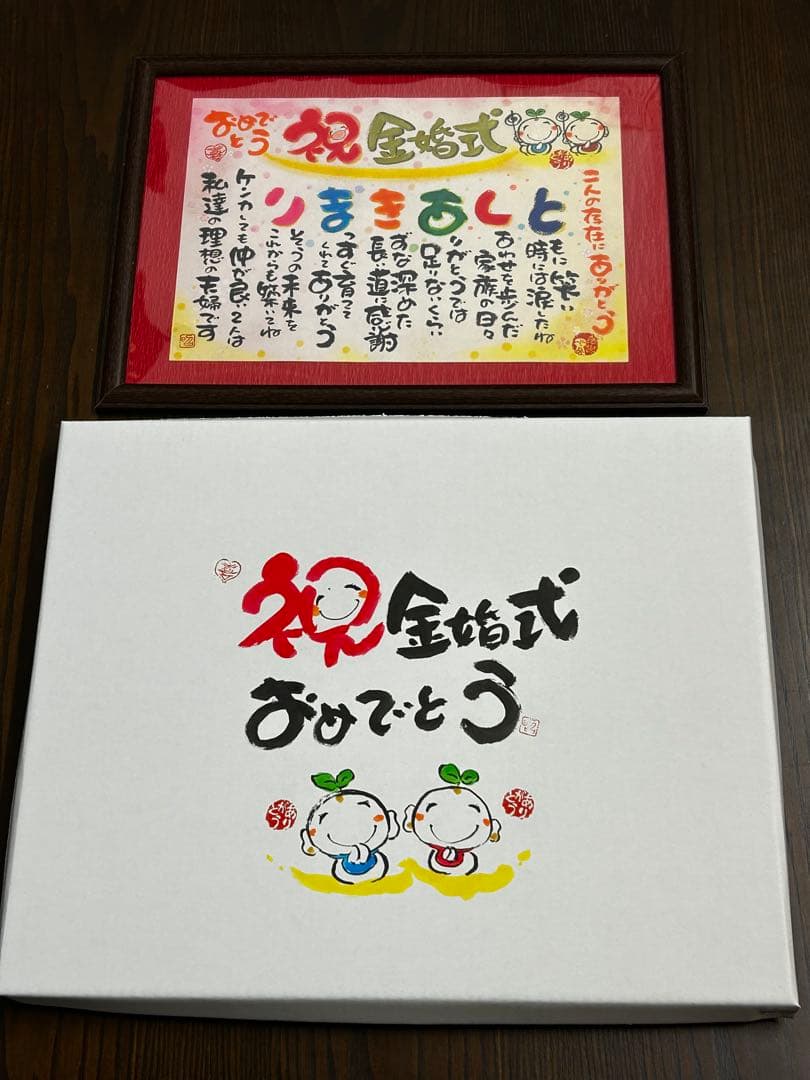 おめで
とう
祝 金婚式
二人の存在にありがとう
ともに笑い
時には涙したね
しあわせを歩んだ
家族の日々
ありがとうでは
足りないくらい
きずな深めた
長い道に感謝
まっすぐ育って
くれてありがとう
りそうの未来を
これからも築いてね
ケンカしても仲が良い2人は
私達の理想の夫婦です
祝 金婚式
おめでとう
ありがとう
ありがとう